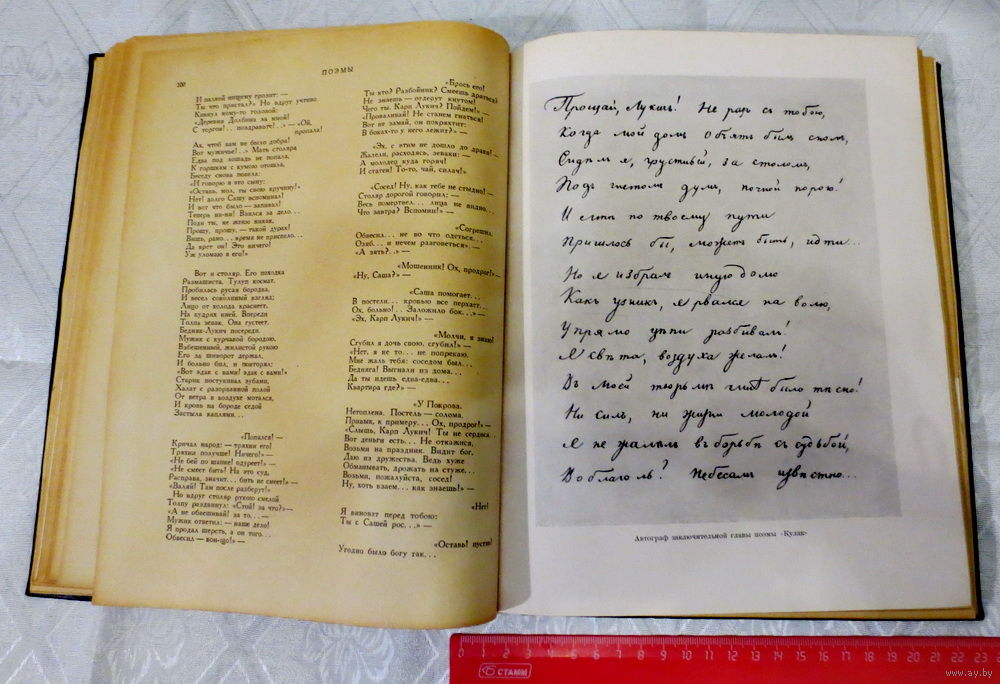 100
ПОЭМЫ
И палкой нищему грозит: —
Ты что пристал?» Но вдруг учтиво
Кивнул кому-то головой:
«Деревня Долбина за мной!
С торгов!.. поздравьте!..» — «Ой,
пропала!
Ах, чтоб вам не было добра!
Вот мужичье!..» Мать столяра
Едва под лошадь не попала,
К горшкам с кумою отошла,
Беседу снова повела:
«И говорю я это сыну:
«Оставь, мол, ты свою кручину!»
Нет! долго Сашу вспоминал!
И вот что было — запивал!
Теперь ни-ни! Взялся за дело...
Поди ты, не женю никак,
Прошу, прошу, — такой дурак!
Вишь, рано... время не приспело...
Да врет он! Это ничего!
Уж уломаю я его!»
Вот и столяр. Его походка
Размашиста. Тулуп космат.
Пробилась русая бородка,
И весел соколиный взгляд;
Лицо от холода краснеет,
На кудрях иней. Впереди
Толпа зевак. Она густеет.
Бедняк-Лукич посереди.
Мужик с курчавой бородою,
Взбешенный, жилистой рукою
Его за шиворот держал,
И больно бил, и повторял:
«Вот эдак с вами! эдак с вами!»
Старик постукивал зубами,
Халат с разорванной полой
От ветра в воздухе мотался,
И кровь на бороде седой
Застыла каплями...
«Попался! —
Кричал народ: — тряхни его!
Тряхни получше! Ничего!» —
«Не бей по шапке! одуреет!» —
«Не смеет бить! На это суд,
Расправа, значит... бить не смеет!» —
«Валяй! Там после разберут!»
Но вдруг столяр рукою смелой
Толпу раздвинул: «Стой! за что?» —
«А не обвешивай! за то... —
Мужик ответил: — наше дело!
Я продал шерсть, а он того...
Обвесил — вон-що!» —
«Брось его!
Ты кто? Разбойник? Смеешь драться?
Не знаешь — отдерут кнутом!
Чего ты, Карп Лукич? Пойдем!» —
«Проваливай! Не станем гнаться!
Вот не замай, он покряхтит:
В боках-то у него лежит?» —
«Эх, с этим не дошло до драки! —
Жалели, расходясь, зеваки: —
А молодец куда горяч!
И статен! То-то, чай, силач!»
«Сосед! Ну, как тебе не стыдно! —
Столяр дорогой говорил: —
Весь помертвел... лица не видно...
Что завтра? Вспомни!» —
«Согрешил,
Обвесил... не во что одеться...
Озяб... и нечем разговеться». —
«А зять?..» —
«Мошенник! Ох, продрог!» —
«Ну, Саша?» —
«Саша помогает...
В постели... кровью все перхает...
Ох, больно!.. Заложило бок...» —
«Эх, Карп Лукич!» —
«Молчи, я знаю!
Сгубил я дочь свою, сгубил!» —
«Нет, я не то... не попрекаю.
Мне жаль тебя: соседом был...
Бедняга! Выгнали из дома...
Да ты идешь едва-едва...
Квартира где?» —
«У Покрова.
Нетоплена. Постель — солома.
Привык, к примеру... Ох, продрог!» —
«Слышь, Карп Лукич! Ты не сердися...
Вот деньги есть... Не откажися,
Возьми на праздник. Видит бог,
Даю из дружества. Ведь хуже
Обманывать, дрожать на стуже...
Возьми, пожалуйста, сосед!
Ну, хоть взаем... как знаешь!» —
«Нет!
Я виноват перед тобою:
Ты с Сашей рос...» —
«Оставь! пусти!
Угодно было богу так...
Прощай, Лукичъ! Не разъ съ тобою,
Когда мой домъ объятъ былъ сномъ,
Сидѣлъ я, грустный, за столомъ,
Подъ гнетомъ думъ, ночной порою!
И мнѣ по твоему пути
Пришлось бы, можетъ быть, идти...
Но я избралъ иную долю
Какъ узникъ, я рвался на волю,
Упрямо цѣпи разбивалъ!
Я свѣта, воздуха желалъ!
Въ моей тюрьмѣ мнѣ было тѣсно!
Ни силъ, ни жизни молодой
Я не жалѣлъ въ борьбѣ съ судьбой,
Во благо ль? Небесамъ извѣстно...
Автограф заключительной главы поэмы «Кулак»
0 1 2 3 4 5 6 7 8 9 10 11 12 13 14 15 16 17 18 19 20 21 22 23
СТАММ
www.ay.by